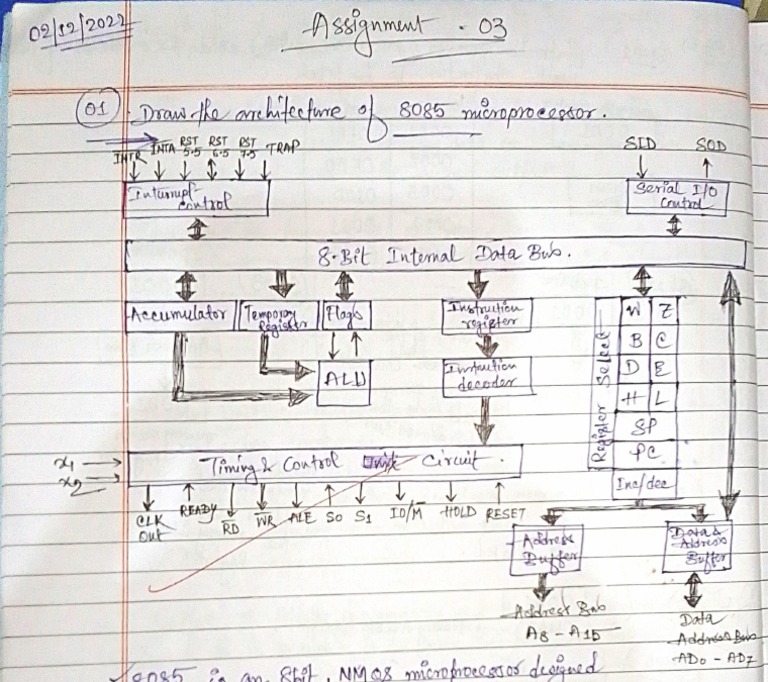 02/12/2022
Assignment . 03
01. Draw the architecture of 8085 microprocessor.
INTR INTA RST 5.5 RST 6.5 RST 7.5 TRAP
SID SOD
Interrupt control
Serial I/O Control
8-Bit Internal Data Bus.
Accumulator Temporary Register Flags Instruction register
W Z
B C
D E
H L
SP
PC
Register Select
ALU
Instruction decoder
Inc/dec
X1
X2
Timing & Control Circuit.
CLK Out READY RD WR ALE S0 S1 IO/M HOLD RESET
Address Buffer
Data & Address Buffer
Address Bus
A8 - A15
Data
Address Bus
AD0 - AD7
8085 is an 8bit, NMOS microprocessor designed